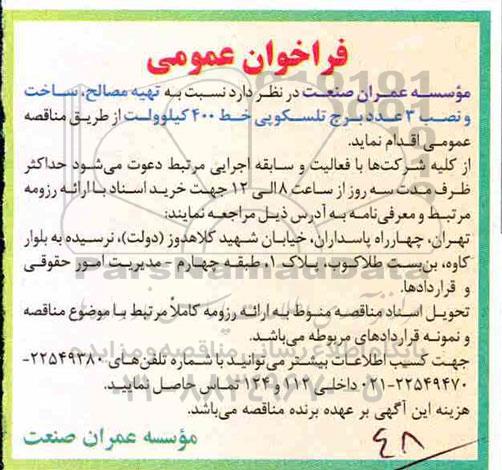 فراخوان عمومی
مؤسسه عمران صنعت در نظر دارد نسبت به تهیه مصالح، ساخت
و نصب ۳ عدد برج تلسکوپی خط ۴۰۰ کیلوولت از طریق مناقصه
عمومی اقدام نماید.
از کلیه شرکت‌ها با فعالیت و سابقه اجرایی مرتبط دعوت می‌شود حداکثر
ظرف مدت سه روز از ساعت ۸ الی ۱۲ جهت خرید اسناد با ارائه رزومه
مرتبط و معرفی‌نامه به آدرس ذیل مراجعه نمایند:
تهران، چهارراه پاسداران، خیابان شهید کلاهدوز (دولت)، نرسیده به بلوار
کاوه، بن‌بست طلاکوب، پلاک ۱، طبقه چهارم - مدیریت امور حقوقی
و قراردادها.
تحویل اسناد مناقصه منوط به ارائه رزومه کاملاً مرتبط با موضوع مناقصه
و نمونه قراردادهای مربوطه می‌باشد.
جهت کسب اطلاعات بیشتر می‌توانید با شماره تلفن‌های ۲۲۵۴۹۳۸۰-
۰۲۱-۲۲۵۴۹۴۷۰ داخلی ۱۱۲ و ۱۲۴ تماس حاصل نمایید.
هزینه این آگهی بر عهده برنده مناقصه می‌باشد.
مؤسسه عمران صنعت
۴۸
ParsNamadData
پایگاه اطلاع رسانی مناقصه و مزایده